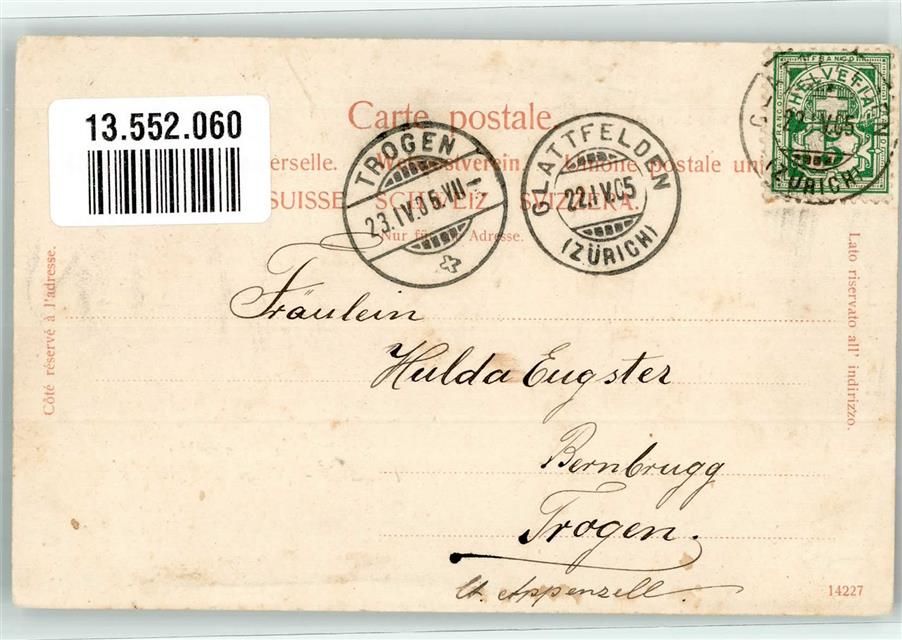 13.552.060
Carte postale
erselle. Weltpostverein. Unione postale uni
SUISSE. SCHWEIZ. SVIZZERA.
Nur für die Adresse.
TROGEN
23.IV.
GLATTFELDEN
22.IV.05
(ZÜRICH)
FRANCO
HELVETIA
(ZÜRICH)
Côté réservé à l'adresse.
Lato riservato all' indirizzo.
Fräulein
Hulda Eugster
Bernbrugg
Trogen.
Ct. Appenzell.
14227